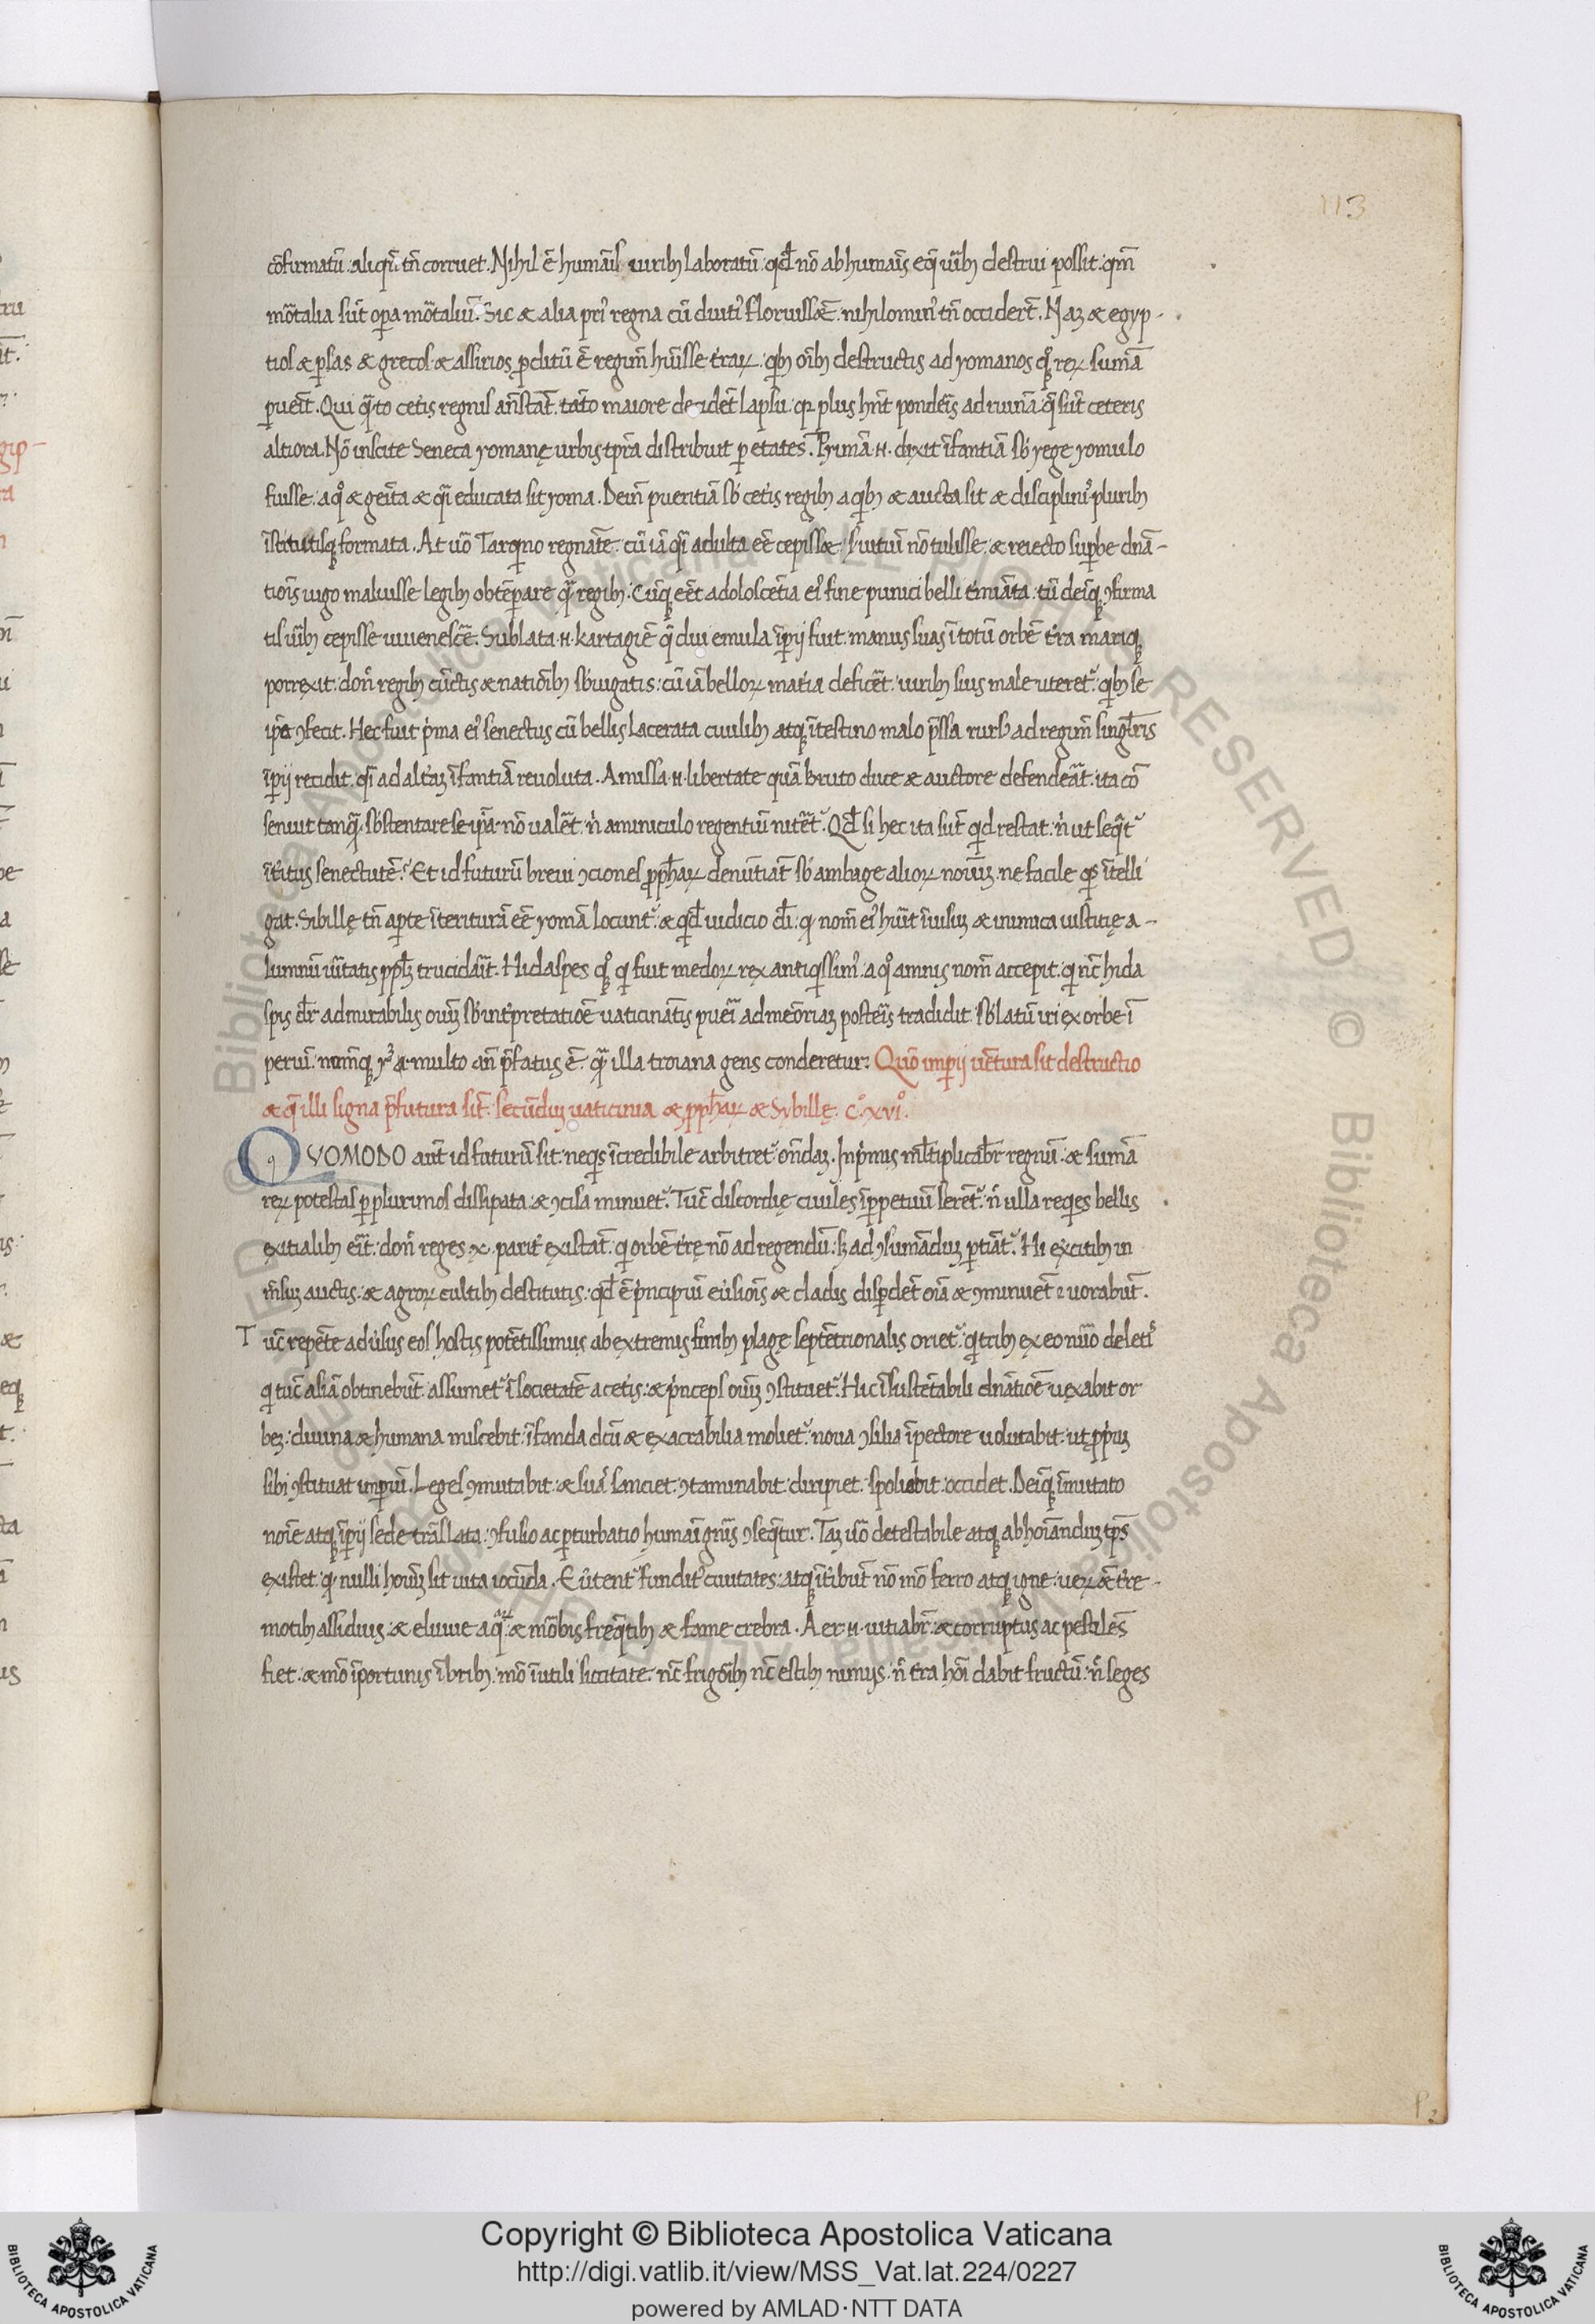 113
cōfirmatū. aliqñ. tñ corruet. Nihil ē humāis uirib; laboratū. qđ nō ab humāis eq̄ uīb; destrui possit. qm̄
mōtalia sūt oꝑa mōtaliū. Sic & alia prī regna cū diutiꝰ floruissēt. nihilominꝰ tñ occiderт̄. Naʒ & egyp-
tios & ꝑsas & grecos. & assirios ꝓditū ē regim̄ hūisse t̄raꝝ. qb; oīb; destructis ad romanos qͦꝫ reꝝ sūmā
ꝑuēit. Qui q̄to cetīs regnis an̄stāt. tāto maiore decidēt lapsu. qꝛ plus hn̄t pondeīs ad ruinā. q̄ sūt ceteris
altiora. Nō inscite Seneca romanę urbis tp̄ra distribuit ꝑ etates. Primā .n. dixit īfantiā sb̄ rege romulo
fuisse. a qͦ & geīta & qi educata sit roma. Dein̄ pueritiā sb̄ cetīs regib; a qb; & aucta sit & disciplinīꝰ plurib;
īstitutisq; formata. At uō Tarqno regnāte. cū iā qi adulta eē cepissꝫ. suitiū nō tulisse. & reiecto suꝑbe dnā-
tiōis iugo maluisse legib; obtēperare q̄ regib;. Cūq; eēt adoloscētia eiꝰ fine punici belli t̄miāta. tū deiq; ꝯfirma
tis uīb; cepisse iuuenescē. Sublata .n. kartagīe q̄ diu emula īꝑij fuit. manus suas ī totū orbē t̄ra mariq;
porrexit. don̄ regib; cūctis & natiōib; sb̄iugatis. cū iā belloꝝ mat̄ia deficēt. uirib; suis male uteret᷑. qb; se
ip̄a ꝯfecit. Hec fuit p̄ma eiꝰ senectus cū bellis lacerata ciuilib; atq; ītestino malo p̄ssa rursꝰ ad regim̄ singl̄ris
īꝑij recidit. qsi ad alt̄aʒ īfantiā reuoluta. Amissa .n. libertate quā Bruto duce & auctore defendeāt. ita cō
senuit tanq̄. sb̄stentare se ip̄a nō ualēt. n̄ aminiculo regentiū nitēt᷑. Qđ si hec ita sūt qd restat. n̄ ut seq̄t᷑
īt̄itus senectutē? Et id futurū breui ꝯciones ꝓph̄aꝝ denūtiāt sb̄ ambage alioꝝ noīuʒ. ne facile qs ītelli
gat. Sibillę tñ aꝑte īteriturā eē romā locunt᷑. & qđ iudicio dī. q nom̄ eiꝰ hūit īuisuʒ & inimica iustitię a-
lumnū uītatis ppłʒ trucidāit. Hidaspes qͦꝫ q fuit medoꝝ rex antiqssimꝰ. a qͦ amnis nom̄ accepit. q nc̄ hida
spis dr̄ admirabilis oiuʒ sb̄ int̄pretatiōe uaticināтis puei ad meōriaʒ posteīs tradidit sb̄latū iri ex orbe ī
perui. nūmq; multo an̄ p̄fatus ē. q̄ illa troiana gens conderetur. Quō imꝑij uētura sit destructio
& q̄ illi signa p̄futura sīt. secūduʒ uaticinia & ꝓph̄aꝝ & Sybillę. Cͦ. xviͦ.
QVOMODO aut̄ id futurū sit. neqs īcredibile arbitret᷑ on̄daʒ. Inp̄mis ml̄tiplicabr̄ regnū. & sūmā
reꝝ potestas ꝑ plurimos dissipata. & ꝯcisa minuet᷑. Tūc discordię ciuiles īꝑpetuū serēt᷑. n̄ ulla reqes bellis
exitialib; eīt. don̄ reges .x. parit̄ existāt. q orbē t̄rę nō ad regendū. sꝫ ad ꝯsumāduʒ ꝑtiāt᷑. Hi ex̄citib; in
m̄suʒ auctis. & agroꝝ cultib; destitutis. qđ ē p̄ncipiū eūsiōis & cladis disꝑdēt oīa & ꝯminuēt ⁊ uorabūt.
Tūc repēte adūsus eos hostis potētissimus ab extremis finib; plagę septētrionalis oriet᷑. q trib; ex eo nūō deletꝭ
q tūc asiā obtinebūt. assumet᷑ ī societatē a cetīs. & p̄nceps oīuʒ ꝯstituet᷑. Hic īsustētabili dnātiōe uexabit or
beʒ. diuina & humana miscebit. īfanda dc̄ū & exacrabilia moliet᷑. noua ꝯsilia ī pectore uolutabit. ut ꝓpiuʒ
sibi ꝯstituat imꝑiū. Leges ꝯmutabit. & suas sanciet. ꝯtaminabit. diripiet. spoliabit. occidet. Deiq; īmutato
noīe atq; īꝑij sede trāslata. ꝯfusio ac ꝑturbatio humāi gn̄is ꝯseq̄tur. Taʒ uō detestabile atq; abhoīanduʒ tp̄s
existet. q nulli hoīuʒ sit uita iocūda. Eūtent᷑ fundit᷑ ciuitates. atq; īt̄ibūt nō mō ferro atq; igne. ueꝝ & t̄re-
motib; assiduis. & eluuie aq̄ꝝ. & mōbis freq̄tib; & fame crebra. Aer .n. uitiabr̄. & corruptus ac pestilēs
fiet. & mō īportunis ībrib;. mō īutili siccitate. nc̄ frigōib; nc̄ estib; nimijs. n̄ t̄ra hoī dabit fructū. n̄ seges
Copyright © Biblioteca Apostolica Vaticana
http://digi.vatlib.it/view/MSS_Vat.lat.224/0227
powered by AMLAD·NTT DATA